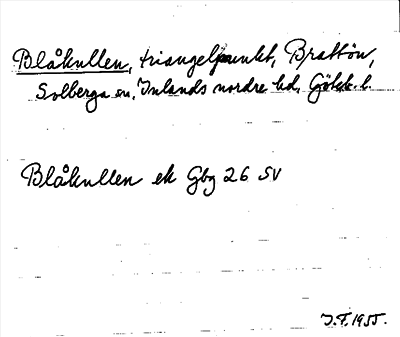 Blåkullen, triangelpunkt, Brattön,
Solberga sn, Inlands nordre hd, Göteb. l.
Blåkullen ek Gbg 26 SV
J.F. 1955.